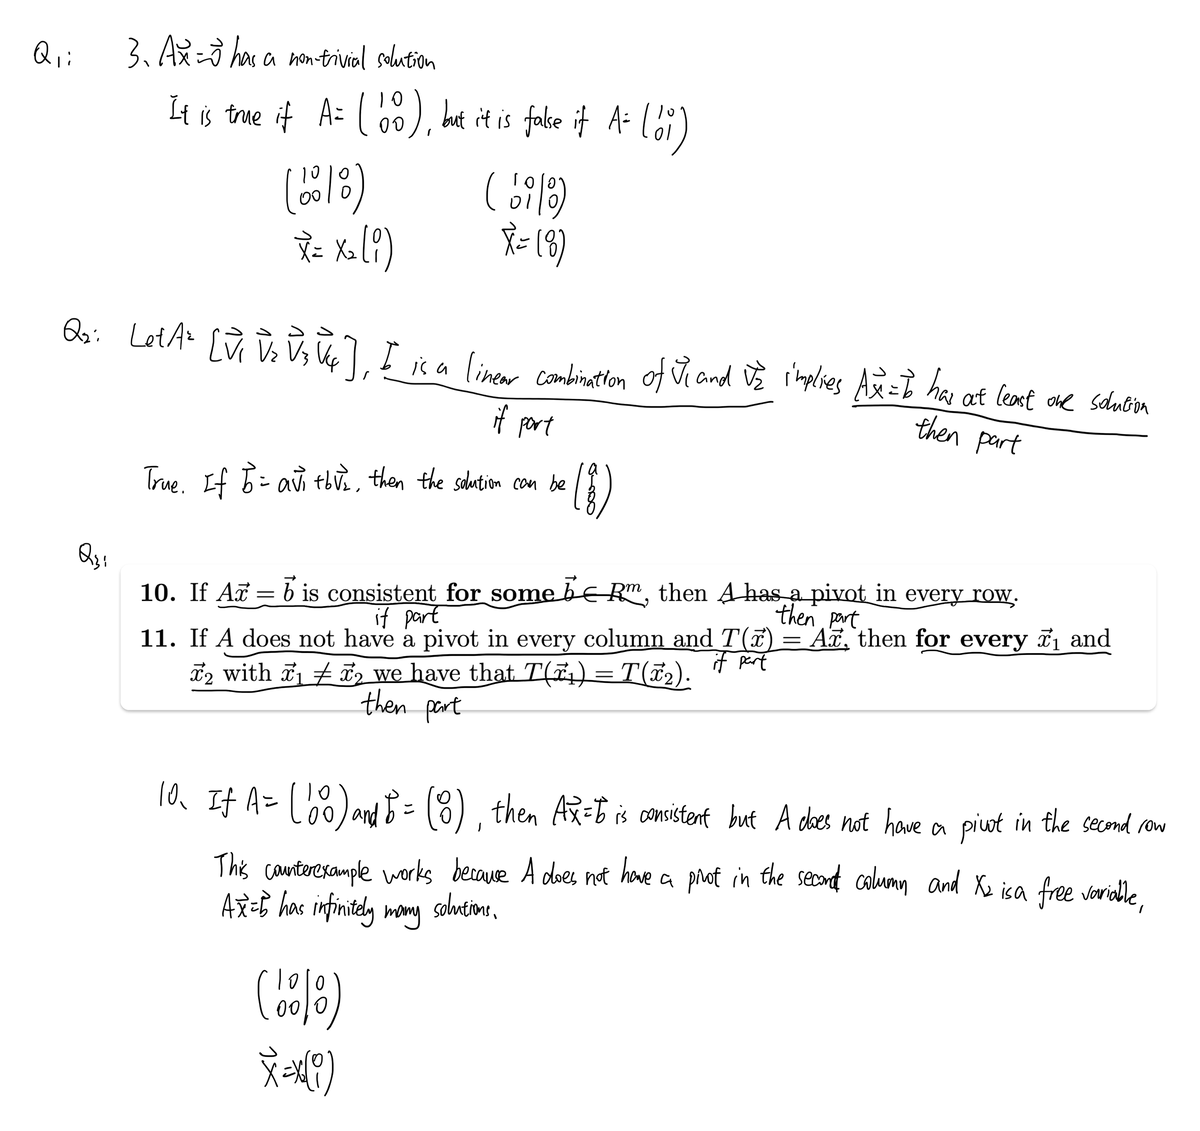 Q1: 3、A\vec{x}=\vec{0} has a non-trivial solution
It is true if A= (1 0 0 0), but it is false if A= (1 0 0 1)
(1 0 | 0
0 0 | 0) (1 0 | 0
0 1 | 0)
\vec{x}= x₂(0 1) \vec{x}=(0 0)
Q2: Let A= [\vec{v}₁ \vec{v}₂ \vec{v}₃ \vec{v}₄], is a linear combination of \vec{v}₁ and \vec{v}₂ implies A\vec{x}=\vec{b} has at least one solution
if part then part
True. If \vec{b}= a\vec{v}₁ +b\vec{v}₂, then the solution can be (a b 0 0)
Q3:
10. If A\vec{x} = \vec{b} is consistent for some \vec{b} ∈ R^m, then A has a pivot in every row.
if part then part
11. If A does not have a pivot in every column and T(\vec{x}) = A\vec{x}, then for every \vec{x}₁ and
\vec{x}₂ with \vec{x}₁ ≠ \vec{x}₂ we have that T(\vec{x}₁) = T(\vec{x}₂). if part
then part
10、 If A= (1 0 0 0) and \vec{b}= (0 0), then A\vec{x}=\vec{b} is consistent but A does not have a pivot in the second row
This counterexample works because A does not have a pivot in the second column and x₂ is a free variable,
A\vec{x}=\vec{b} has infinitely many solutions.
(1 0 | 0
0 0 | 0)
\vec{x}=x₂(0 1)